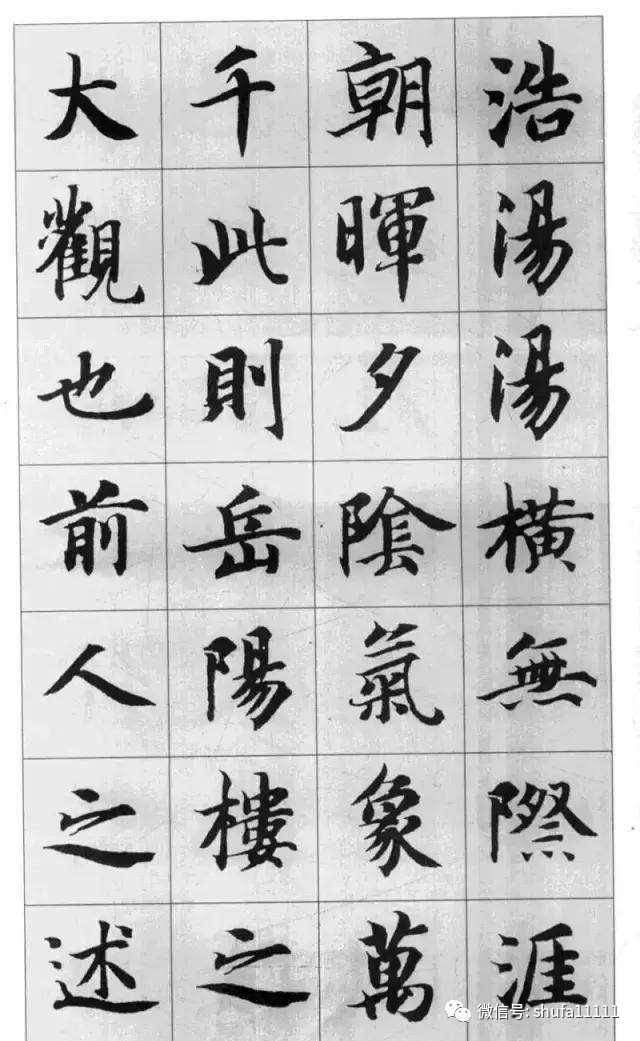 浩湯湯橫無際涯
朝暉夕陰氣象萬
千此則岳陽樓之
大觀也前人之述
微信号: shufa11111